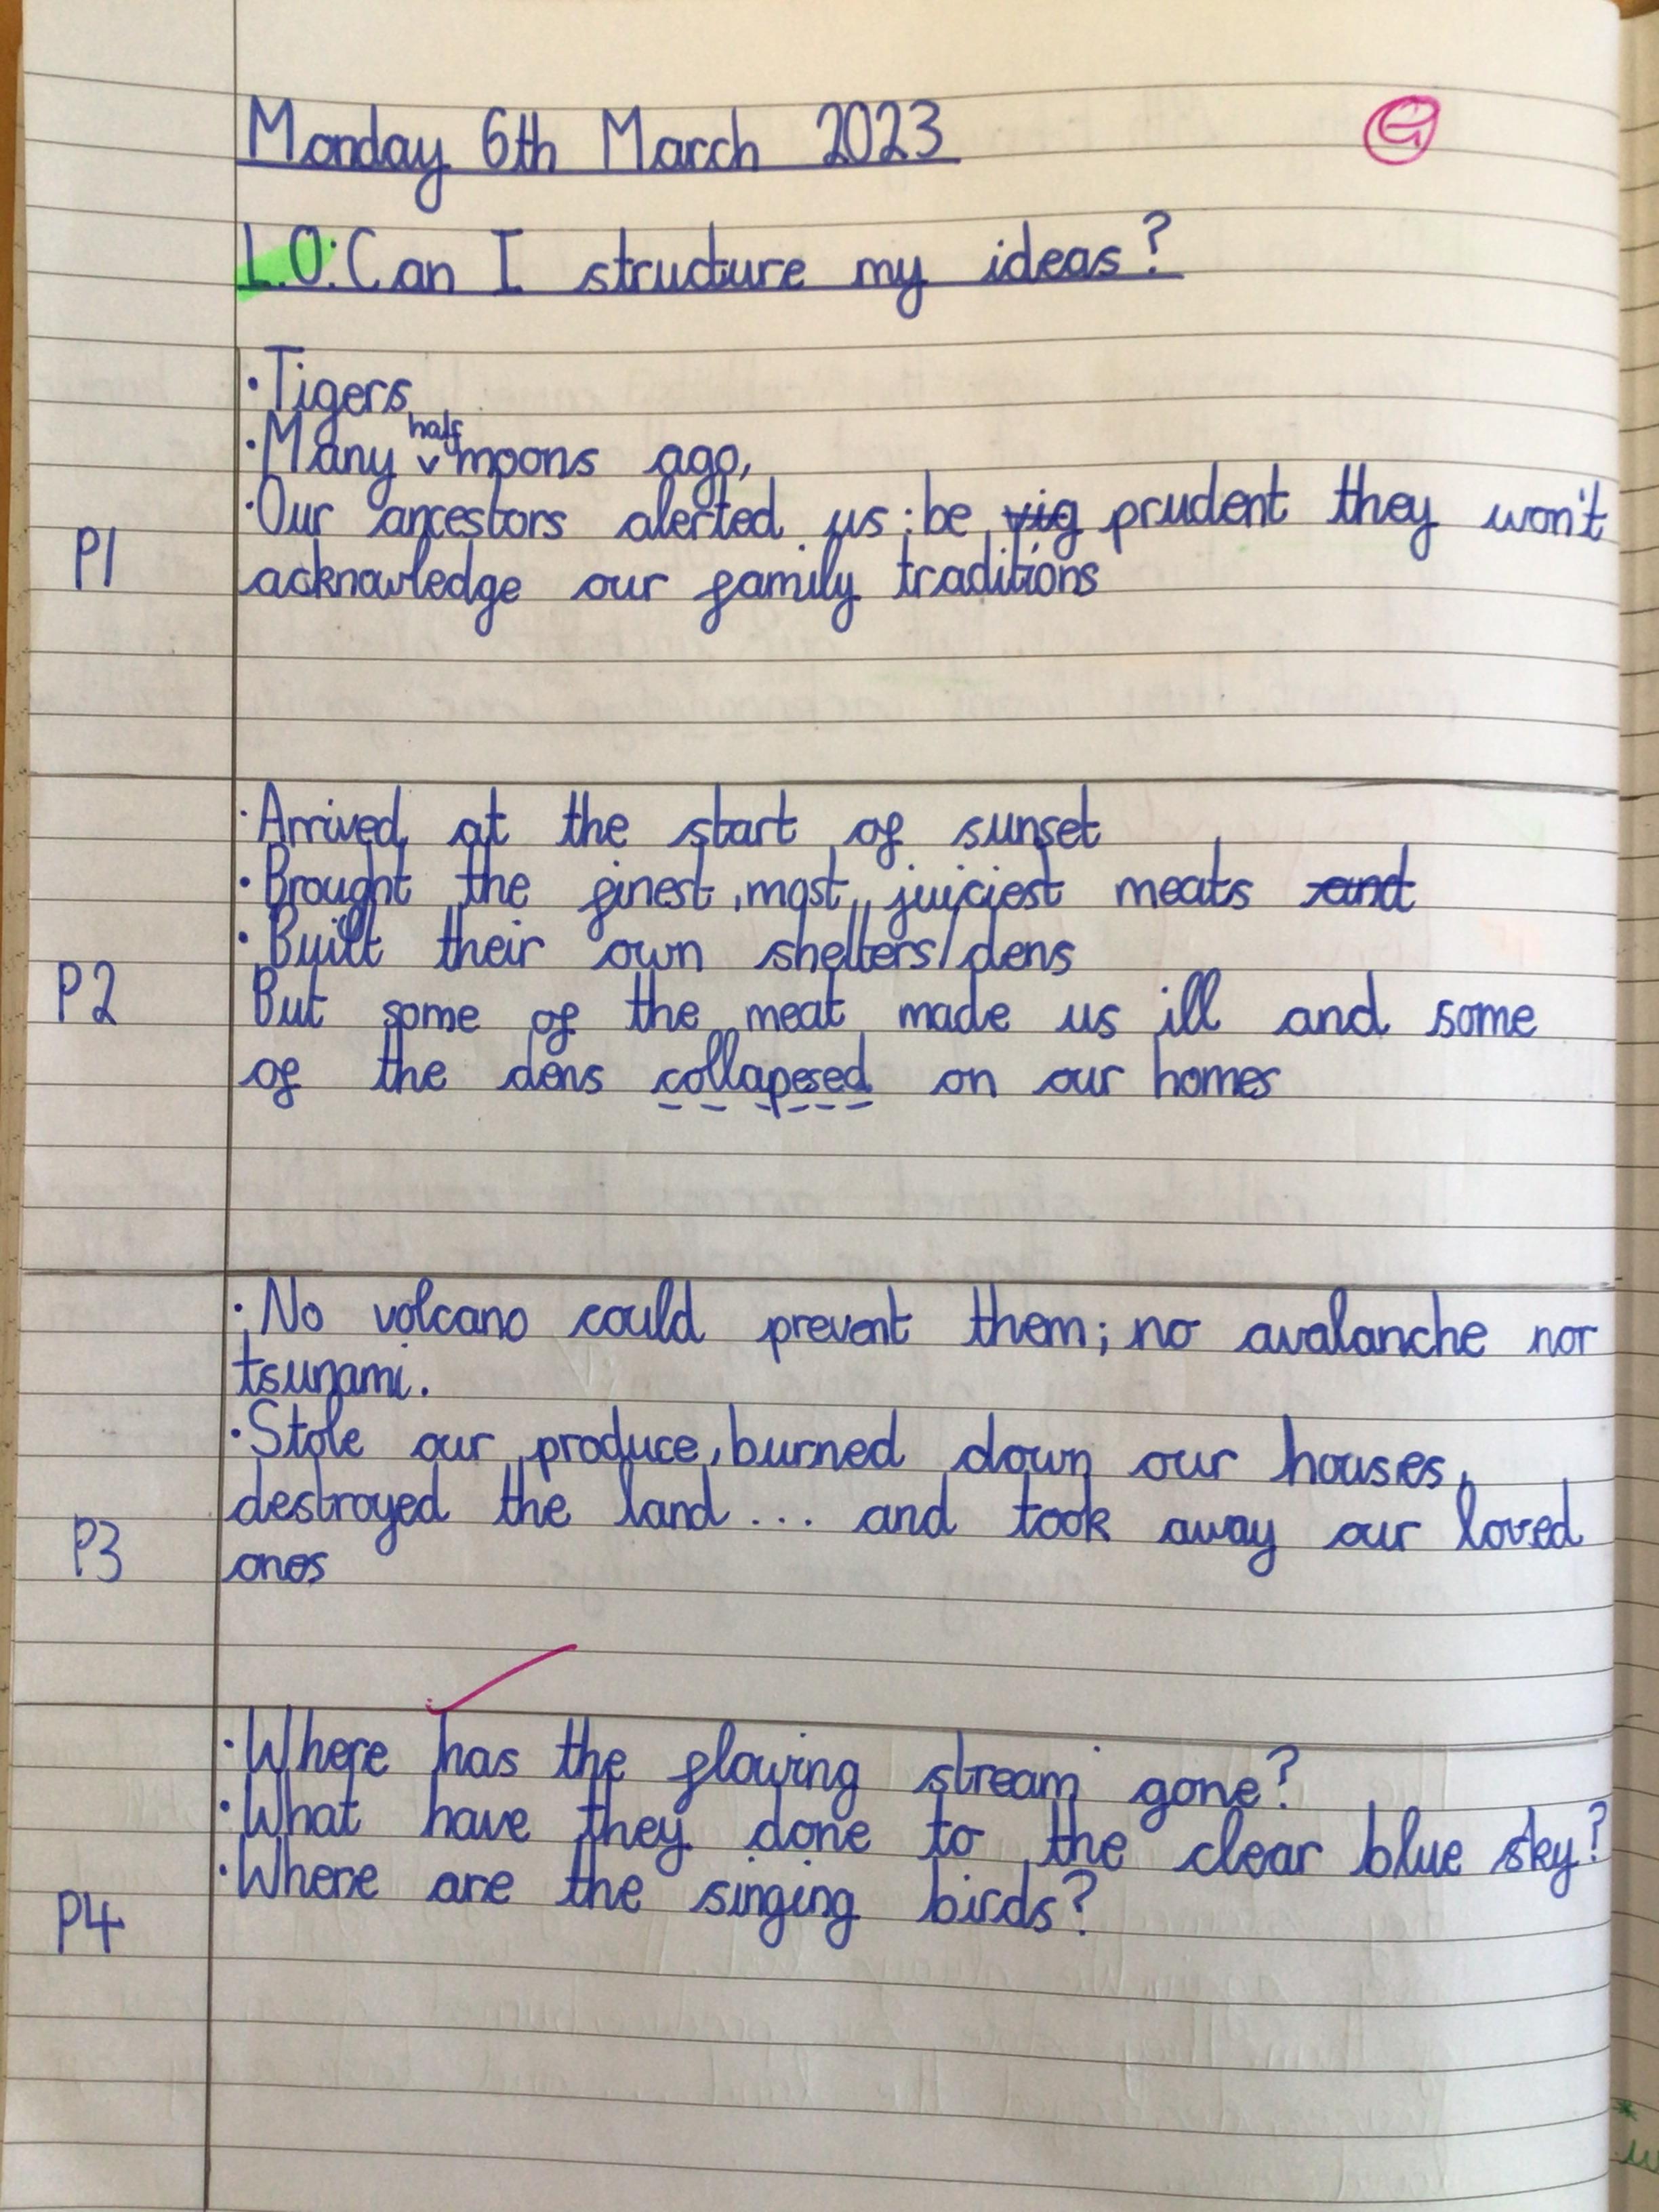 Monday 6th March 2023
G
L.O: Can I structure my ideas?
• Tigers
half
• Many moons ago,
• Our ancestors alerted us: be vig prudent they won't
P1
acknowledge our family traditions
• Arrived at the start of sunset
• Brought the finest, most, juiciest meats and
• Built their own shelters/dens
P2
But some of the meat made us ill and some
of the dens collapesed on our homes
• No volcano could prevent them; no avalanche nor
tsunami.
• Stole our produce, burned down our houses,
destroyed the land... and took away our loved
P3
ones
• Where has the flowing stream gone?
• What have they done to the clear blue sky?
• Where are the singing birds?
P4